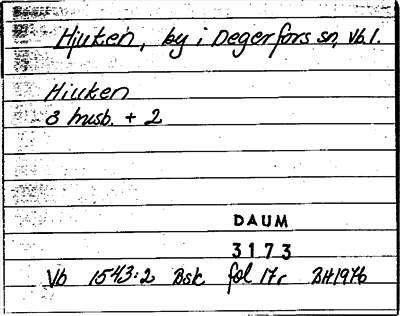 Hjuken, by i Degerfors sn, Vb.l.
Hiuken
3 husb. + 2
DAUM
3173
Vb 1543:2 Bsk fol 17r BH1976